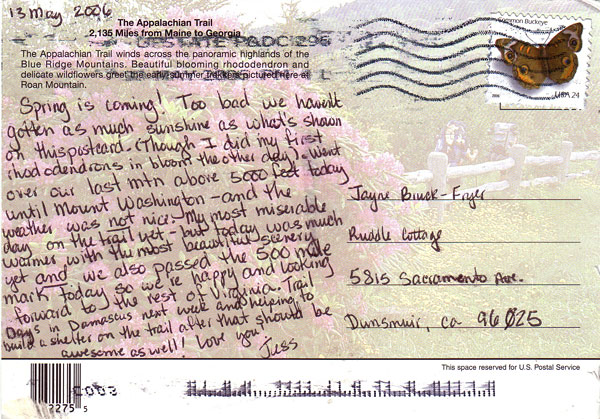 13 May 2006
The Appalachian Trail
2,135 Miles from Maine to Georgia
The Appalachian Trail winds across the panoramic highlands of the
Blue Ridge Mountains. Beautiful blooming rhododendron and
delicate wildflowers greet the early summer trekkers pictured here at
Roan Mountain.
Spring is coming! Too bad we haven't
gotten as much sunshine as what's shown
on this postcard. (Though I did my first
rhododendrons in bloom the other day). Went
over our last mtn above 5000 feet today
until Mount Washington - and the
weather was not nice. My most miserable
day on the trail yet - but today was much
warmer with the most beautiful scenery
yet and we also passed the 500 mile
mark today so we're happy and looking
forward to the rest of Virginia. Trail
Days in Damascus next week and helping to
build a shelter on the trail after that should be
awesome as well! Love you
Jess
Common Buckeye
USA 24
Jayne -Fryer
Ruddle Cottage
5815 Sacramento Ave.
Dunsmuir, ca 96025
This space reserved for U.S. Postal Service
2275 5